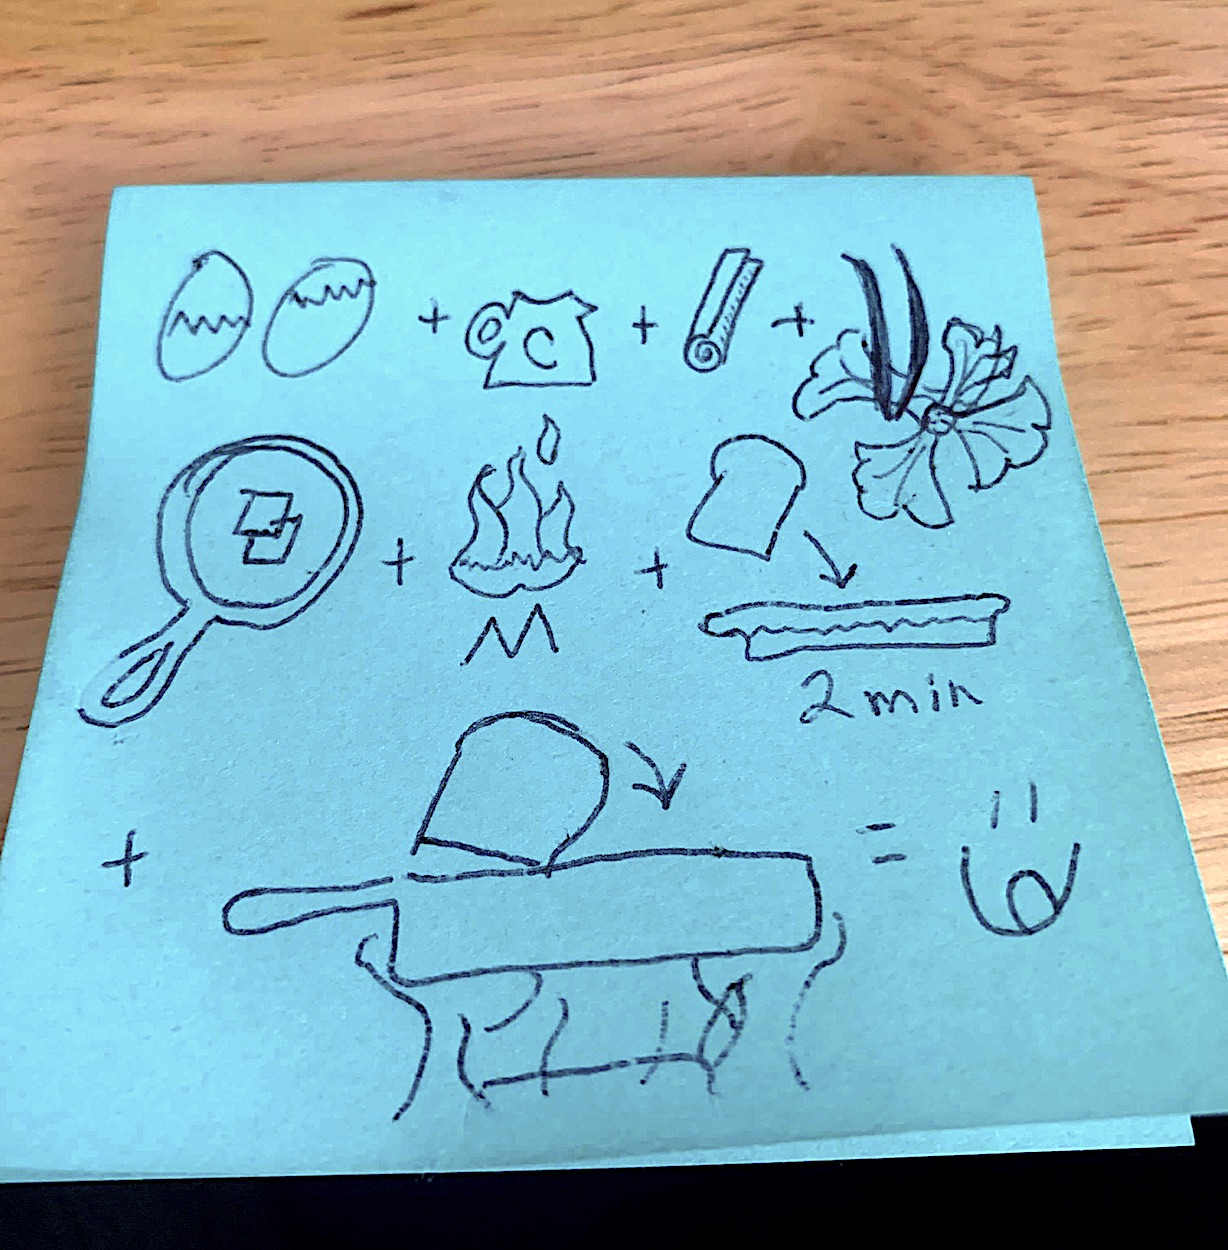 + C + +
+ + 
M
2 min
+ =